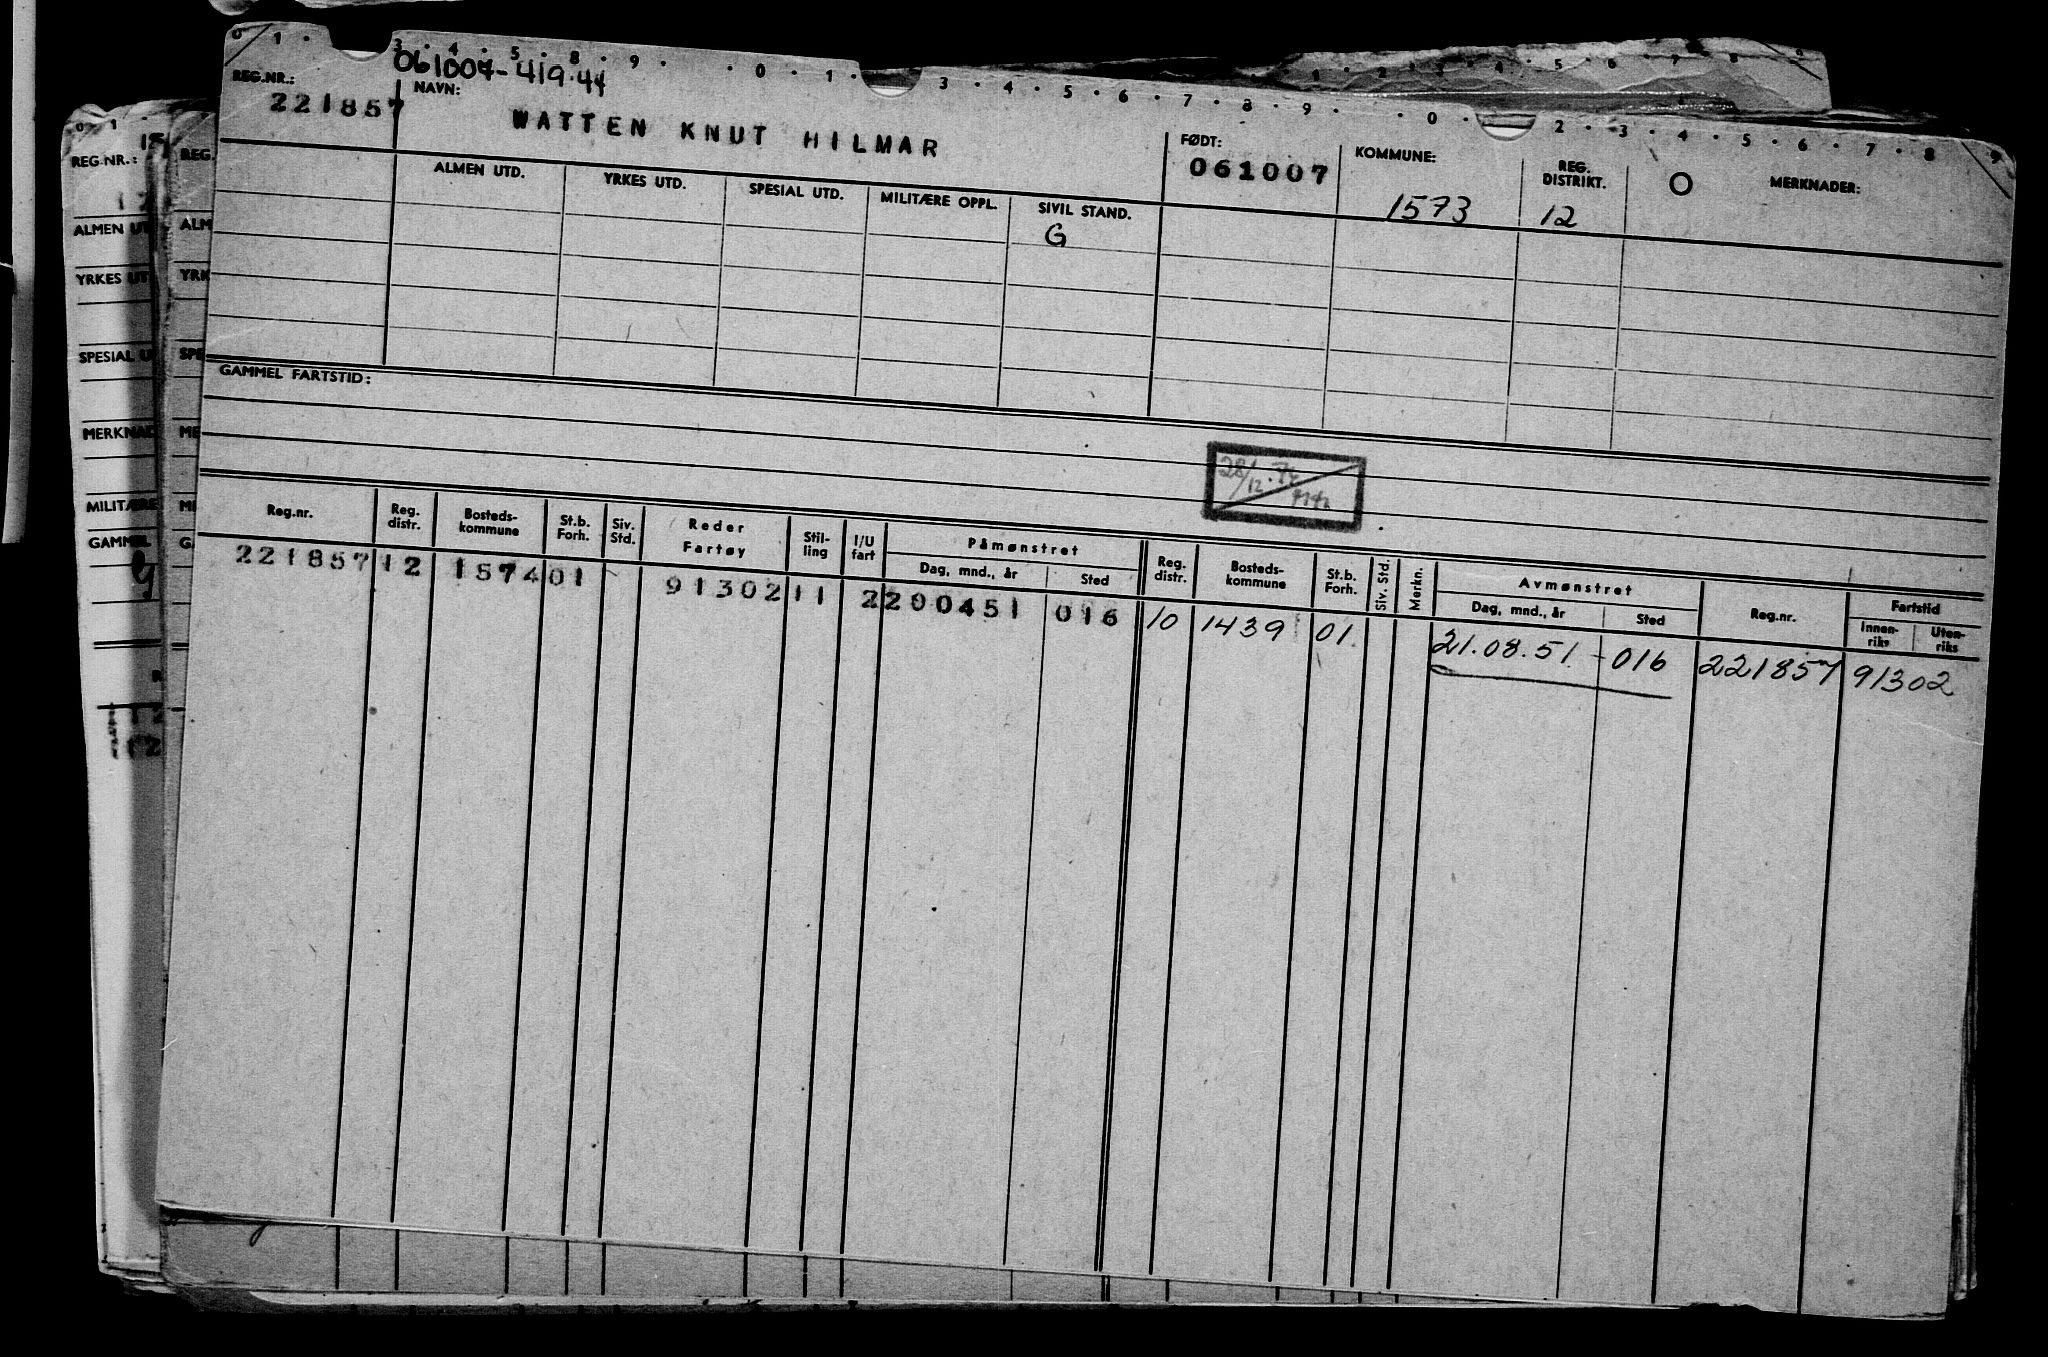 0 1 · 3 · 4 · 5 · 8 · 9 · · 0 · 1 · 3 · 4 · 5 · 6 · 7 · 8 · 9 · · 0 · 2 · 3 · 4 · 5 · 6 · 7 · 8 9
061007-419.44
REG.NR.: NAVN: FØDT: KOMMUNE: REG. DISTRIKT. O MERKNADER:
221857 WATTEN KNUT HILMAR 061007 1573 12
ALMEN UTD. YRKES UTD. SPESIAL UTD. MILITÆRE OPPL. SIVIL STAND.
G
GAMMEL FARTSTID:
28/12.
Reg.nr. Reg. distr. Bosteds- kommune St.b. Forh. Siv. Std. Reder Fartøy Stil- ling I/U fart Påmønstret Dag, mnd., år Sted Reg. distr. Bosteds- kommune St.b. Forh. Siv. Std. Merkn. Avmønstret Dag, mnd., år Sted Reg.nr. Fartstid Innen- riks Uten- riks
221857 12 1574 01 91302 11 2 200451 016 10 1439 01 21.08.51 - 016 221857 91302
REG.NR.:
ALMEN UT
YRKES UT
SPESIAL U
MERKNAD
MILITÆRE
GAMMEL
G
REG.
ALM
YRK
SPE
ME
MI
GA